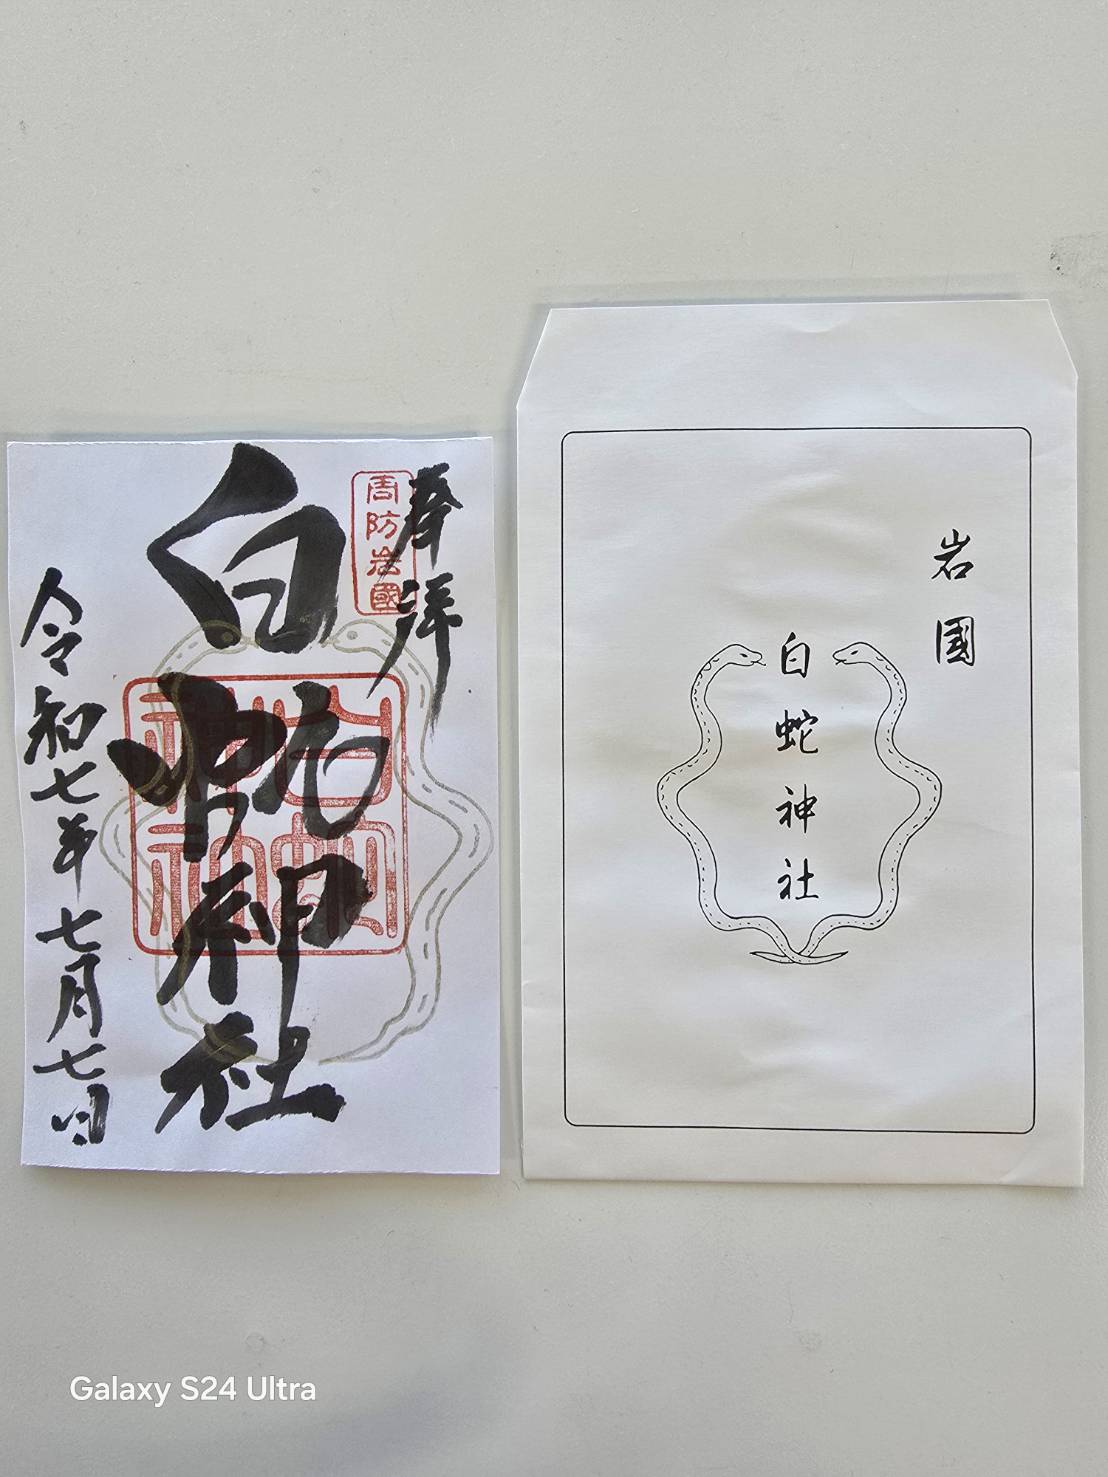 奉拝
周防岩國
白蛇神社
白蛇
神社
令和七年七月七日
岩國
白蛇神社
Galaxy S24 Ultra